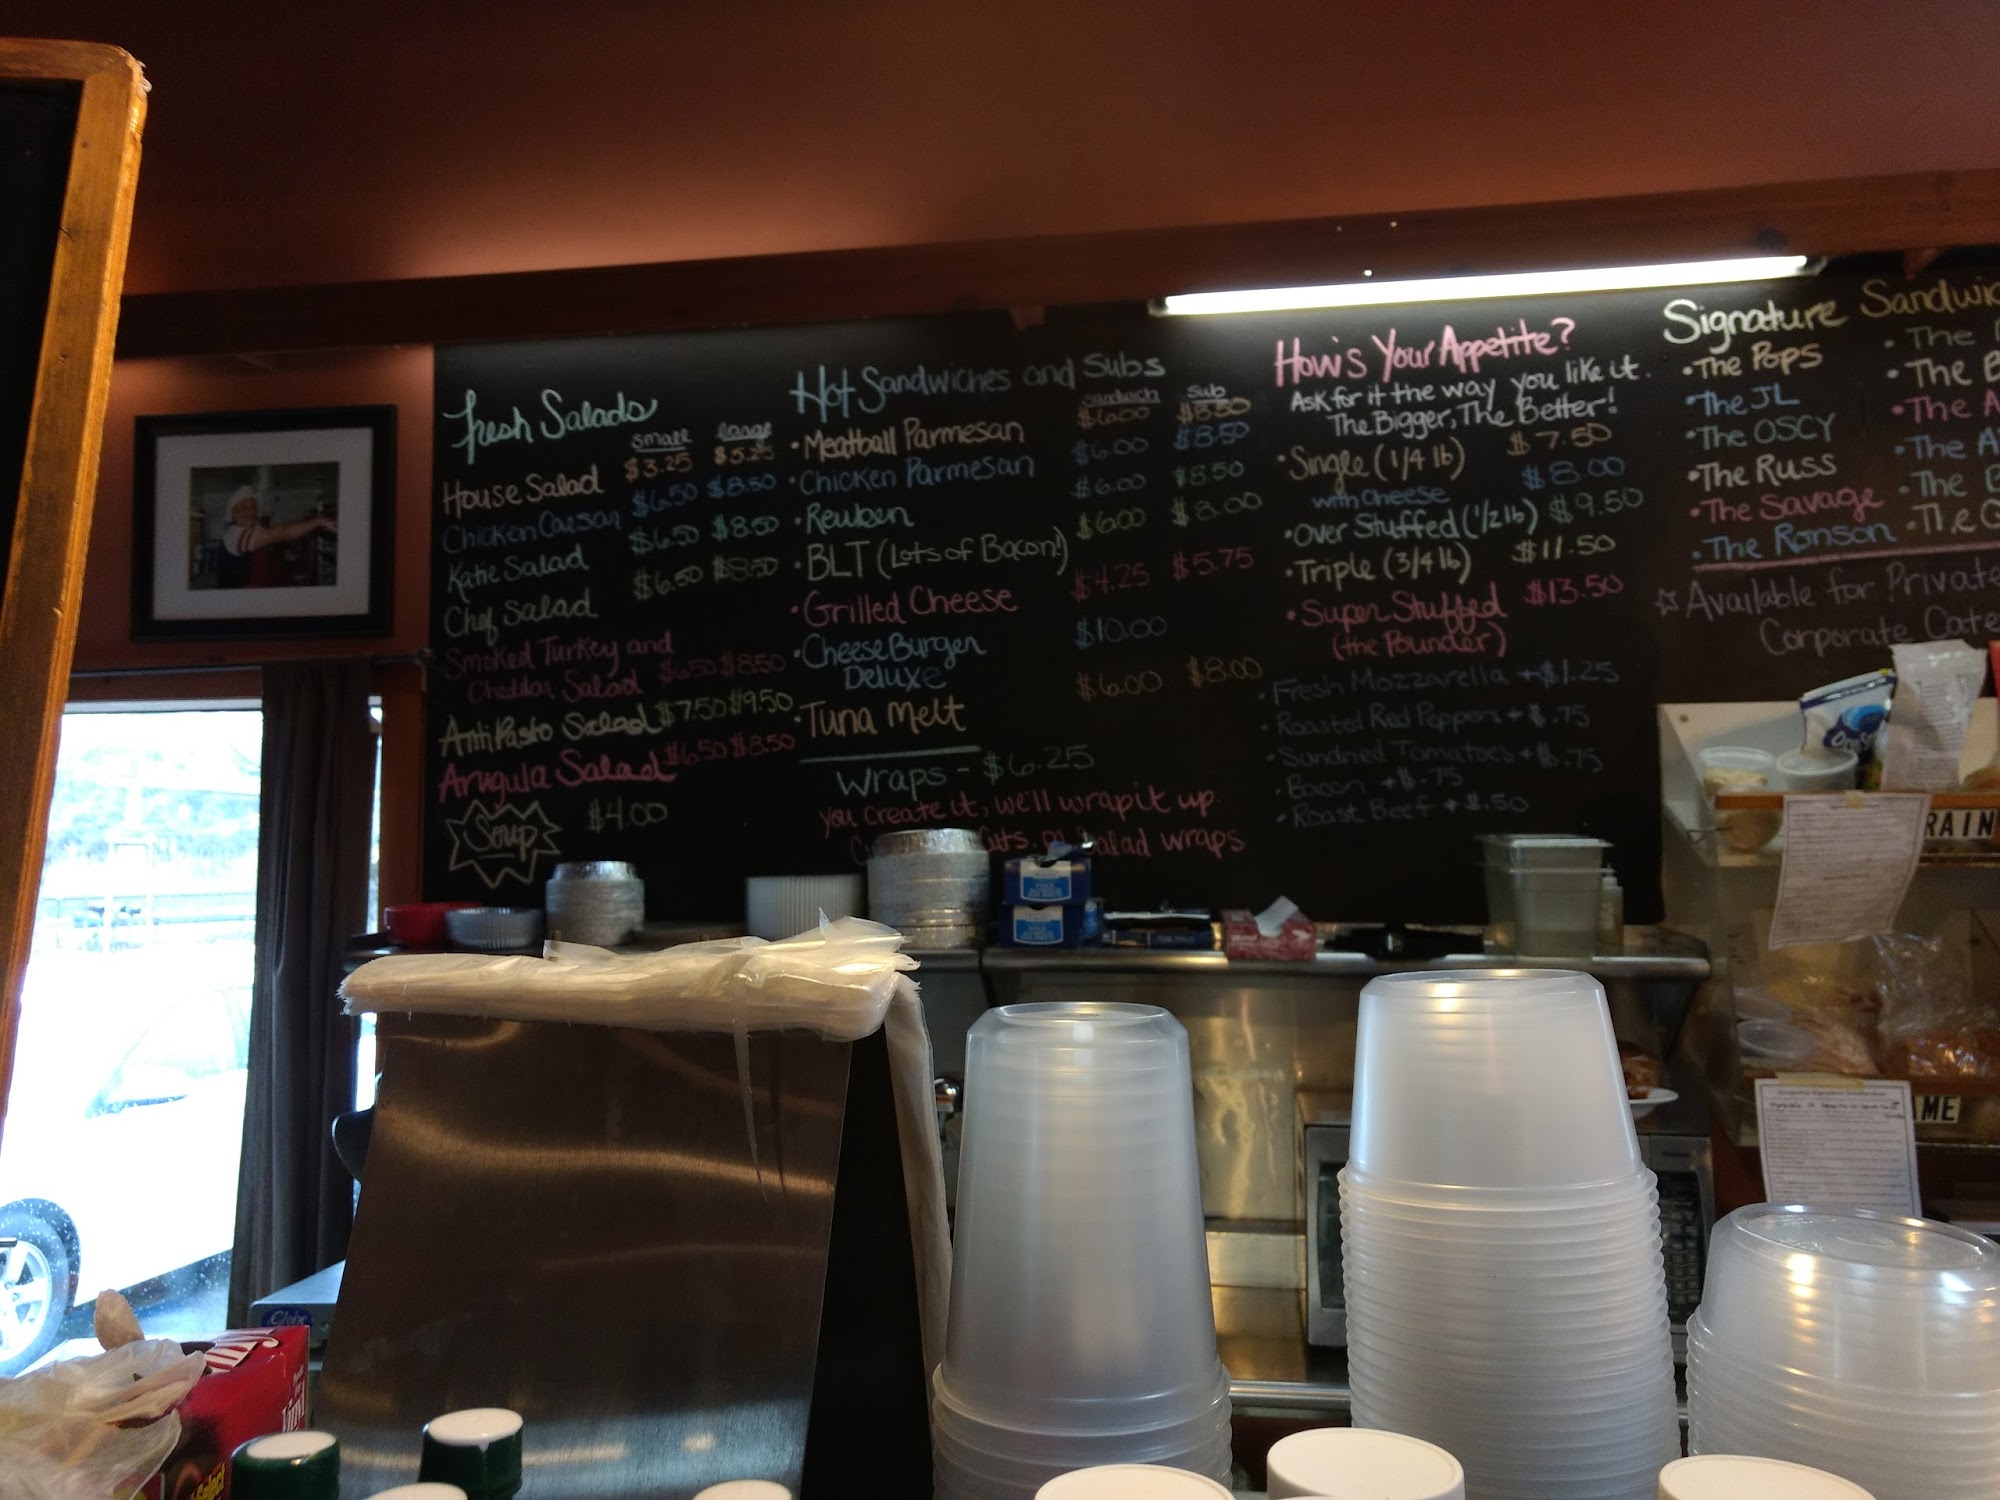 Fresh Salads
small large
House Salad $3.25 $5.25
Chicken Caesar $6.50 $8.50
Katie Salad $6.50 $8.50
Chef Salad $6.50 $8.50
Smoked Turkey and
Cheddar Salad $6.50 $8.50
AntiPasto Salad $7.50 $9.50
Arugula Salad $6.50 $8.50
Soup $4.00
Hot Sandwiches and Subs
sandwich Sub
• Meatball Parmesan $6.00 $8.50
• Chicken Parmesan $6.00 $8.50
• Reuben $6.00 $8.50
• BLT (Lots of Bacon!) $6.00 $8.00
• Grilled Cheese $4.25 $5.75
• Cheese Burger $10.00
Deluxe
• Tuna Melt $6.00 $8.00
Wraps - $6.25
you create it, we'll wrap it up
Cuts, or Salad wraps
How's Your Appetite?
Ask for it the way you like it.
The Bigger, The Better!
• Single (1/4 lb) $7.50
with cheese $8.00
• Over Stuffed (1/2 lb) $9.50
• Triple (3/4 lb) $11.50
• Super Stuffed $13.50
(the Pounder)
• Fresh Mozzarella +$1.25
• Roasted Red Peppers +$.75
• Sundried Tomatoes +$.75
• Bacon +$.75
• Roast Beef +$.50
Signature Sandwic
• The Pops
• The JL
• The OSCY
• The Russ
• The Savage
• The Ronson
• The
• The B
• The A
• The A
• The B
• The
☆ Available for Private
Corporate Cate
RAIN
ME
Globe
Vinyl
Select